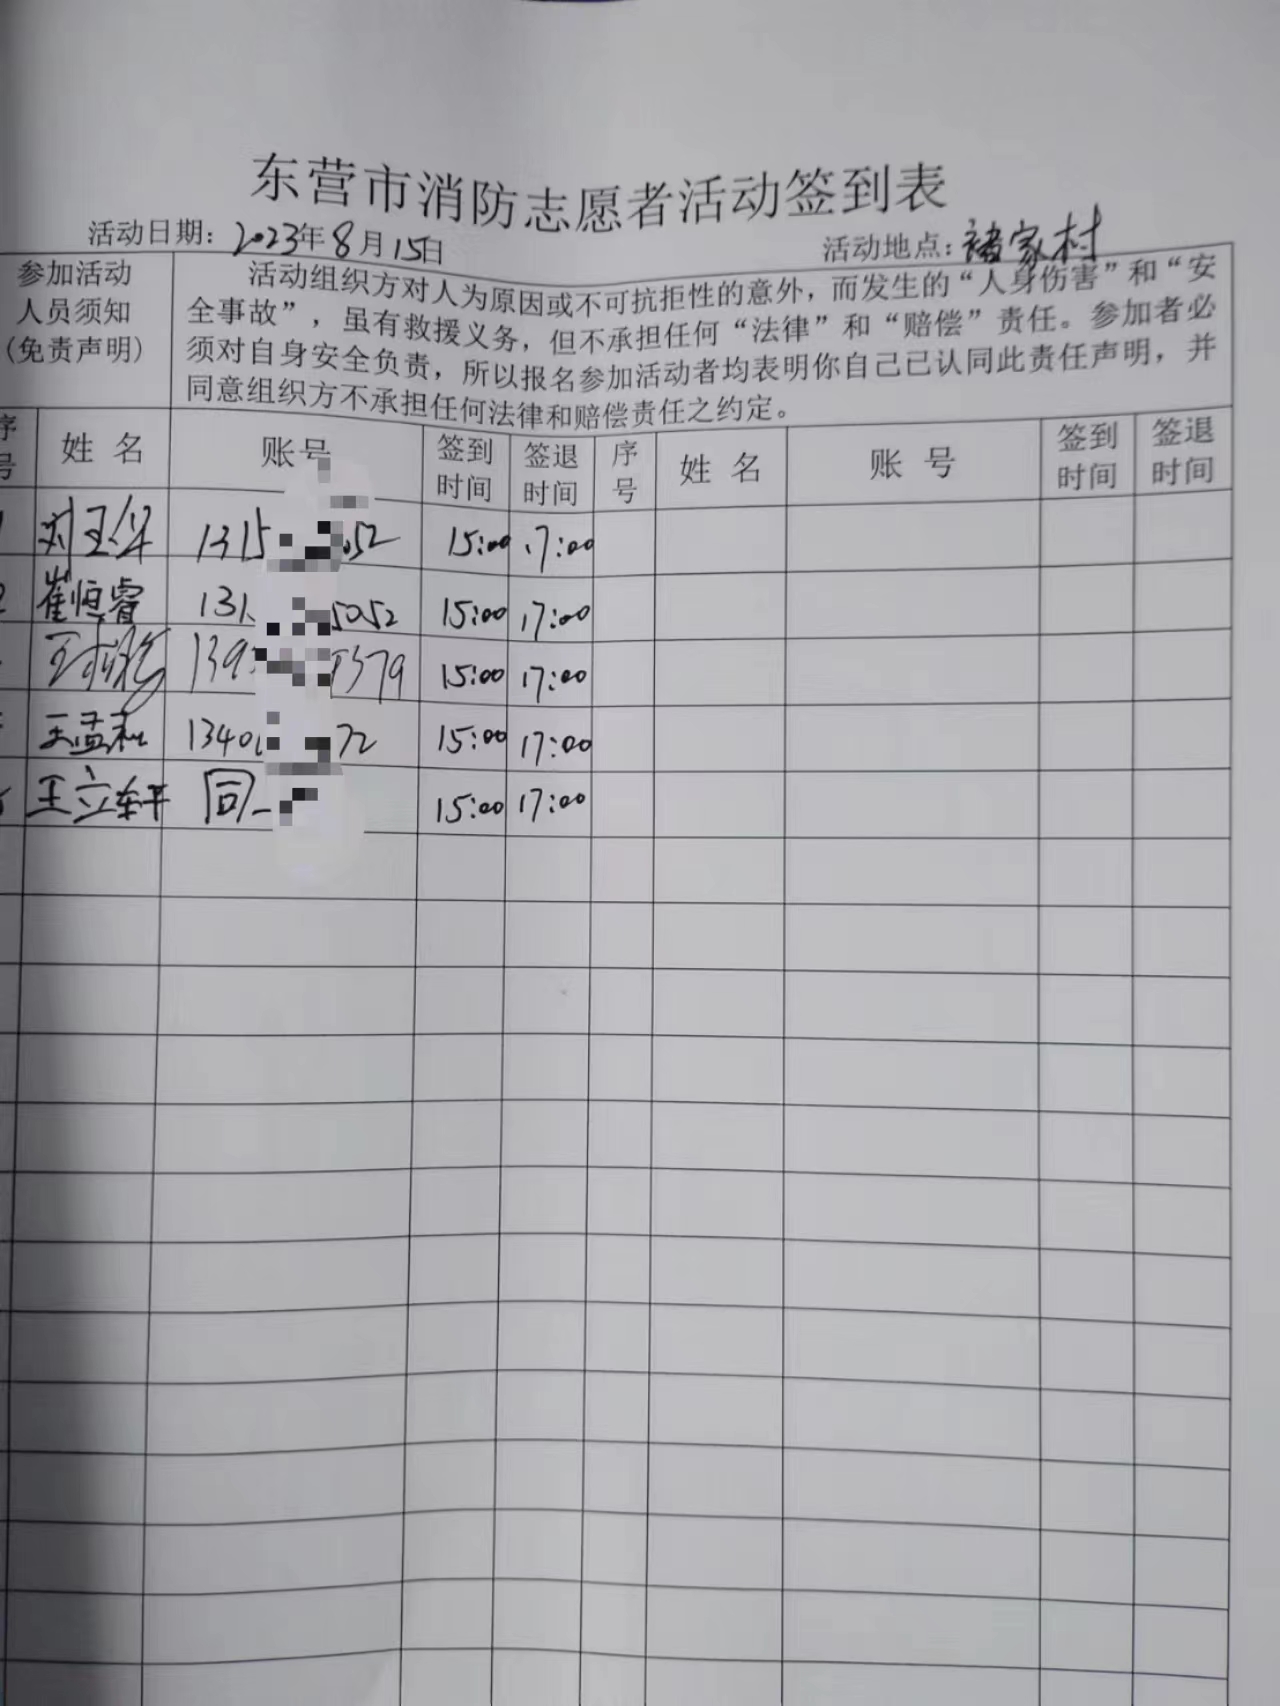 东营市消防志愿者活动签到表
活动日期：2023年8月15日 活动地点：诸家村
参加活动
人员须知
(免责声明)
活动组织方对人为原因或不可抗拒性的意外，而发生的“人身伤害”和“安
全事故”，虽有救援义务，但不承担任何“法律”和“赔偿”责任。参加者必
须对自身安全负责，所以报名参加活动者均表明你自己已认同此责任声明，并
同意组织方不承担任何法律和赔偿责任之约定。
序号 姓名 账号 签到时间 签退时间 序号 姓名 账号 签到时间 签退时间
1 刘 1315 052 15:00 17:00
2 崔恒睿 131 5052 15:00 17:00
王 139 379 15:00 17:00
王孟和 1340 72 15:00 17:00
王立轩 同 15:00 17:00